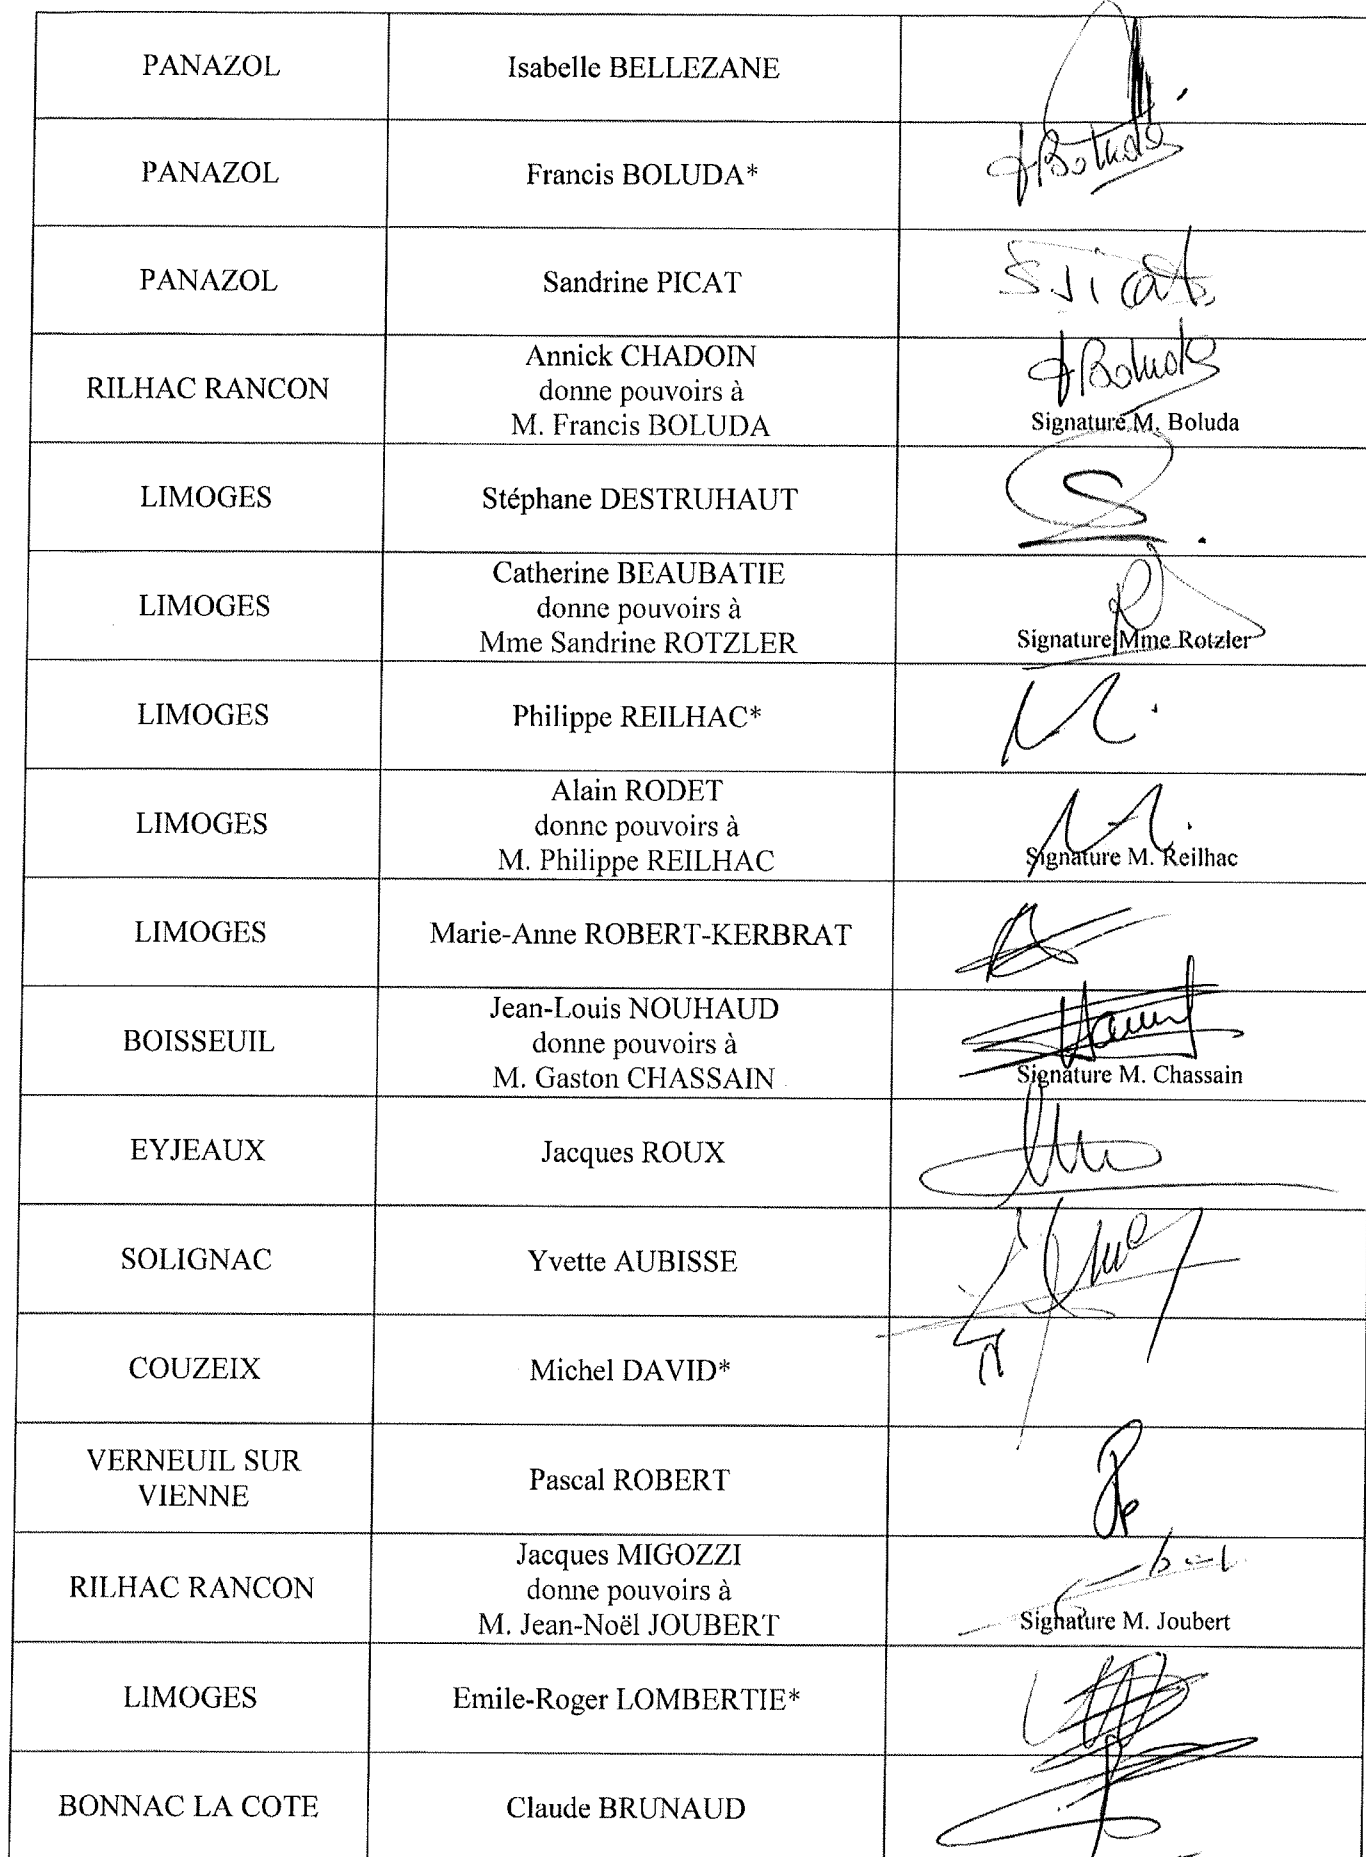 PANAZOL
Isabelle BELLEZANE
PANAZOL
Francis BOLUDA*
Boluda
PANAZOL
Sandrine PICAT
S. Picat
RILHAC RANCON
Annick CHADOIN
donne pouvoirs à
M. Francis BOLUDA
Boluda
Signature M. Boluda
LIMOGES
Stéphane DESTRUHAUT
LIMOGES
Catherine BEAUBATIE
donne pouvoirs à
Mme Sandrine ROTZLER
Signature Mme Rotzler
LIMOGES
Philippe REILHAC*
LIMOGES
Alain RODET
donne pouvoirs à
M. Philippe REILHAC
Signature M. Reilhac
LIMOGES
Marie-Anne ROBERT-KERBRAT
BOISSEUIL
Jean-Louis NOUHAUD
donne pouvoirs à
M. Gaston CHASSAIN
Signature M. Chassain
EYJEAUX
Jacques ROUX
SOLIGNAC
Yvette AUBISSE
COUZEIX
Michel DAVID*
VERNEUIL SUR
VIENNE
Pascal ROBERT
RILHAC RANCON
Jacques MIGOZZI
donne pouvoirs à
M. Jean-Noël JOUBERT
Signature M. Joubert
LIMOGES
Emile-Roger LOMBERTIE*
BONNAC LA COTE
Claude BRUNAUD